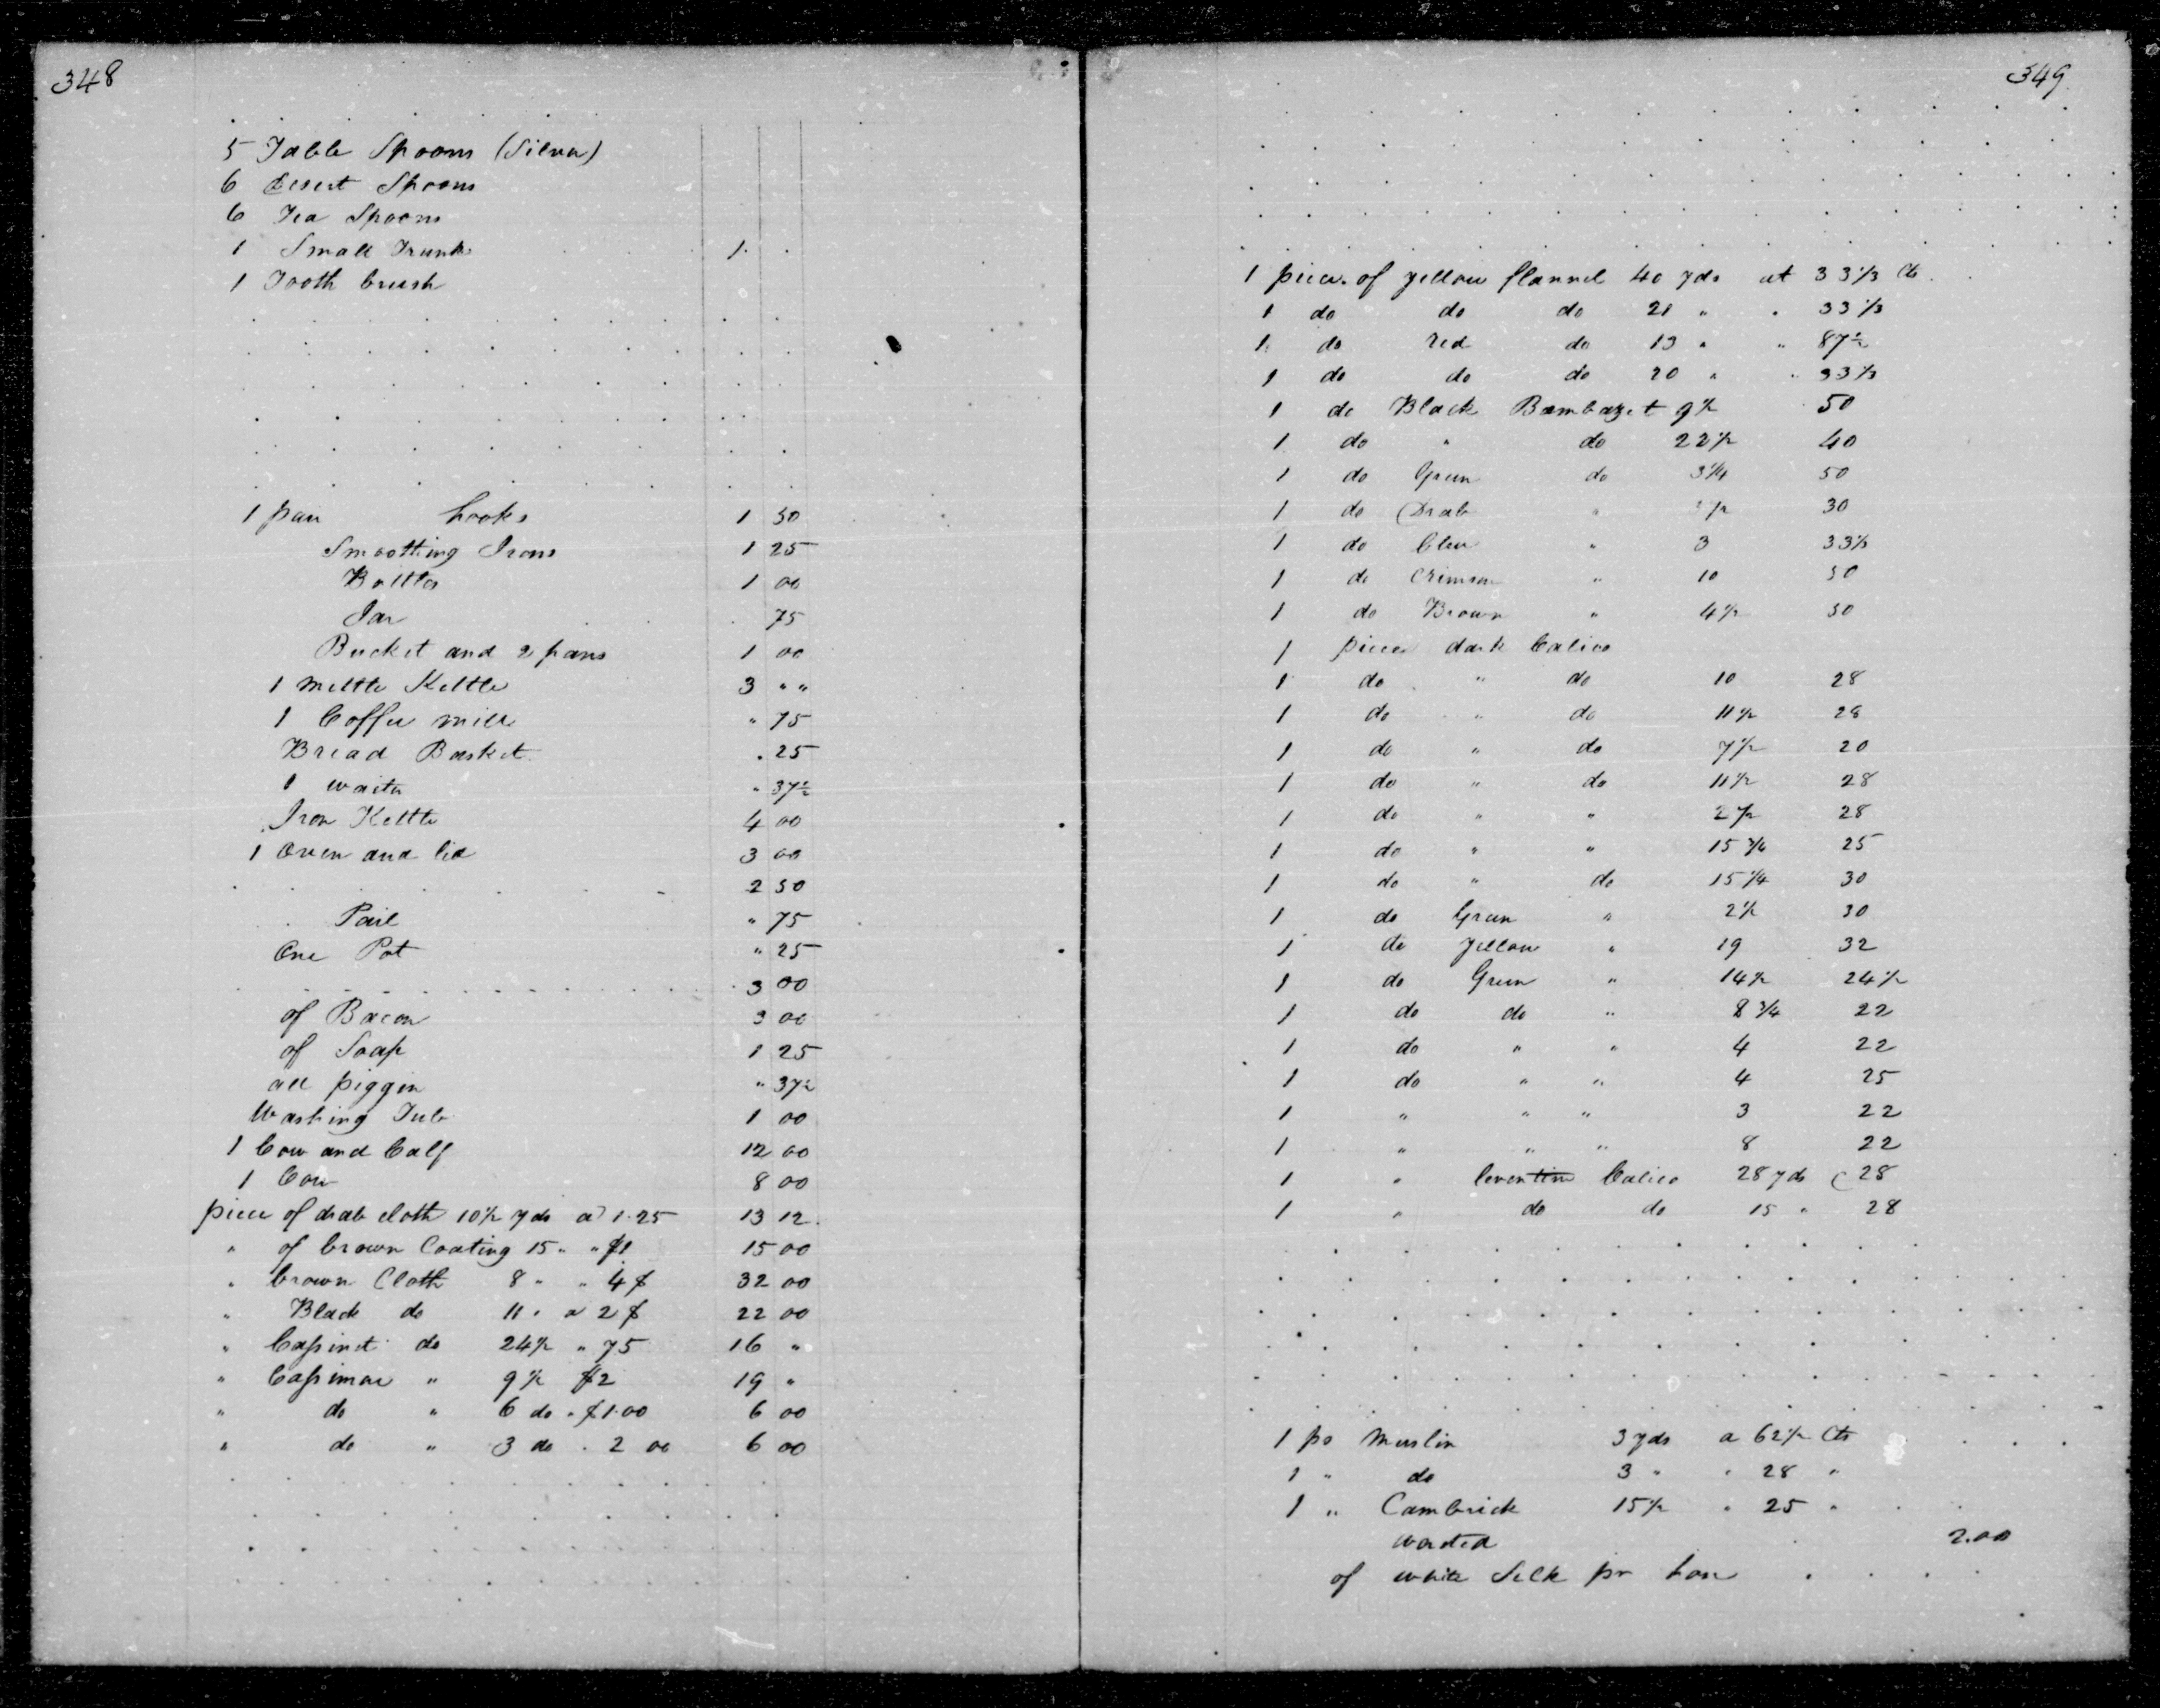 348
5 Table Spoons (Silver)
6 Desert Spoons
6 Tea Spoons
1 Small Trunk 1.
1 Tooth brush
1 pair hooks 1 50
Smoothing Irons 1 25
Bottles 1 00
Jar 75
Bucket and 2 pans 1 00
1 mettle Kettle 3 " "
1 Coffee mill " 75
Bread Basket . 25
1 waiter " 37½
Iron Kettle 4 00
1 Oven and lid 3 00
2 50
Pail " 75
One Pot " 25
3 00
of Bacon 3 00
of Soap 1 25
all piggin " 37½
Washing Tub 1 00
1 Cow and Calf 12 00
1 Cow 8 00
piece of drab cloth 10½ yds a 1.25 13 12
" of brown Coating 15 " " $1 15 00
" brown Cloth 8 " " 4 $ 32 00
" Black do 11 " a 2 $ 22 00
" Cassinet do 24½ " 75 16 "
" Cassimere " 9½ $2 19 "
" do " 6 do " $1.00 6 00
" do " 3 do . 2 00 6 00
349
1 piece of yellow flannel 40 yds at 33⅓ Cts
1 do do do 21 " " 33⅓
1 do red do 13 " " 87½
1 do do do 20 " " 33⅓
1 do Black Bambazet 9½ 50
1 do " do 22½ 40
1 do Green do 3¼ 50
1 do Drab " ½ 30
1 do blue " 3 33⅓
1 do Crimson " 10 50
1 do Brown " 4½ 50
1 piece dark Calico
1 do " do 10 28
1 do " do 11½ 28
1 do " do 7½ 20
1 do " do 11½ 28
1 do " " 2½ 28
1 do " " 15¾ 25
1 do " do 15¼ 30
1 do Green " 2½ 30
1 do yellow " 19 32
1 do Green " 14½ 24½
1 do do " 8¾ 22
1 do " " 4 22
1 do " " 4 25
1 " " " 3 22
1 " " " 8 22
1 " Calico 28 yds 28
1 " do do 15 " 28
1 ps Muslin 3 yds a 62½ Cts
1 " do 3 " " 28 "
1 " Cambrick 15½ " 25 "
worsted 2.00
of white Silk pr hose